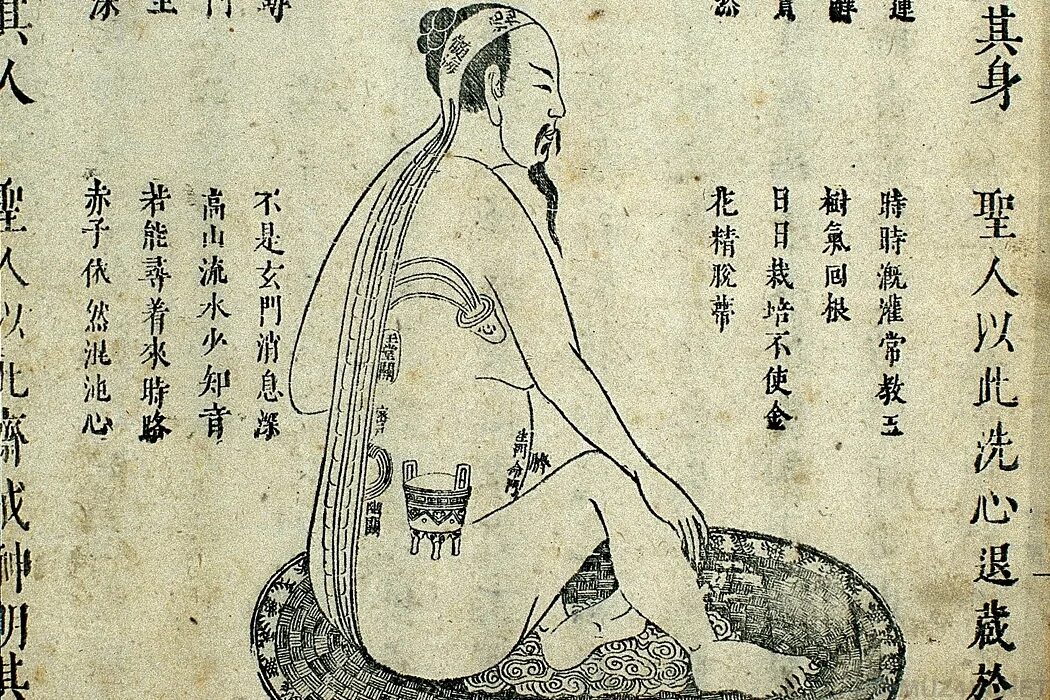 其身
聖人以此洗心退藏
時時溉灌常教玉
樹氣回根
日日栽培不使金
花精脫蒂
心
臍
不是玄門消息深
高山流水少知音
若能尋着來時路
赤子依然混池心
其人
聖人以此齋戒神明其